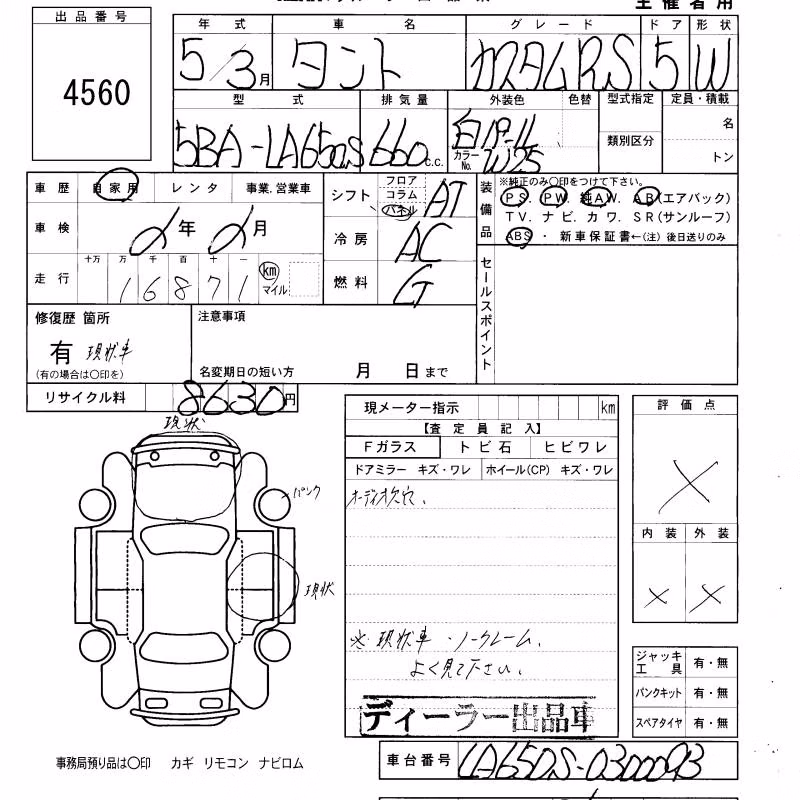 主催者用
出品番号
4560
年式 車名 グレード ドア 形状
5/3月 タント カスタムRS 5 W
型式 排気量 外装色 色替 型式指定 定員・積載
5BA-LA650S 660 c.c. 白パール カラーNo. W25 類別区分 名 トン
車歴 自家用 レンタ 事業,営業車
車検 年 月
走行 十万 万 千 百 十 一
16871 km マイル
シフト フロア コラム パネル AT
冷房 AC
燃料 G
装備品
※純正のみ〇印をつけて下さい。
PS. PW. 純AW. AB(エアバック)
TV. ナビ. カワ. SR(サンルーフ)
ABS ・ 新車保証書←(注) 後日送りのみ
セールスポイント
修復歴 箇所
有 現状車
(有の場合は〇印を)
注意事項
名変期日の短い方 月 日まで
リサイクル料 8630円
現状
パンク
現状
現メーター指示 km
【査定員記入】
Fガラス トビ石 ヒビワレ
ドアミラー キズ・ワレ ホイール(CP) キズ・ワレ
オーディオ欠穴.
※ 現状車・ノークレーム.
よく見て下さい.
ディーラー出品車
評価点
×
内装 外装
× ×
ジャッキ工具 有・無
パンクキット 有・無
スペアタイヤ 有・無
事務局預り品は〇印 カギ リモコン ナビロム
車台番号 LA650S-0300093